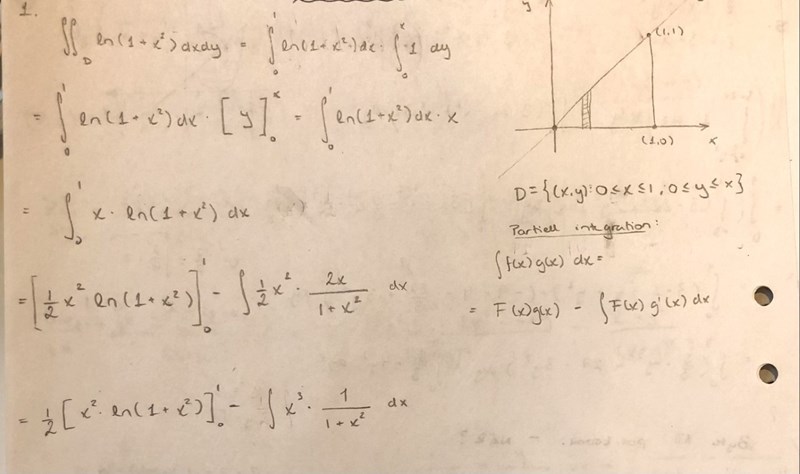 1.
∬_D ln(1+x²) dxdy = ∫₀¹ ln(1+x²) dx · ∫₀ˣ 1 dy
= ∫₀¹ ln(1+x²) dx · [y]₀ˣ = ∫₀¹ ln(1+x²) dx · x
= ∫₀¹ x · ln(1+x²) dx
= [1/2 x² ln(1+x²)]₀¹ - ∫ 1/2 x² · 2x/(1+x²) dx
= 1/2 [x² · ln(1+x²)]₀¹ - ∫ x³ · 1/(1+x²) dx
y
(1,1)
(1,0)
x
D = {(x,y): 0 ≤ x ≤ 1, 0 ≤ y ≤ x}
Partiell integration:
∫ f(x) g(x) dx =
= F(x)g(x) - ∫ F(x) g'(x) dx